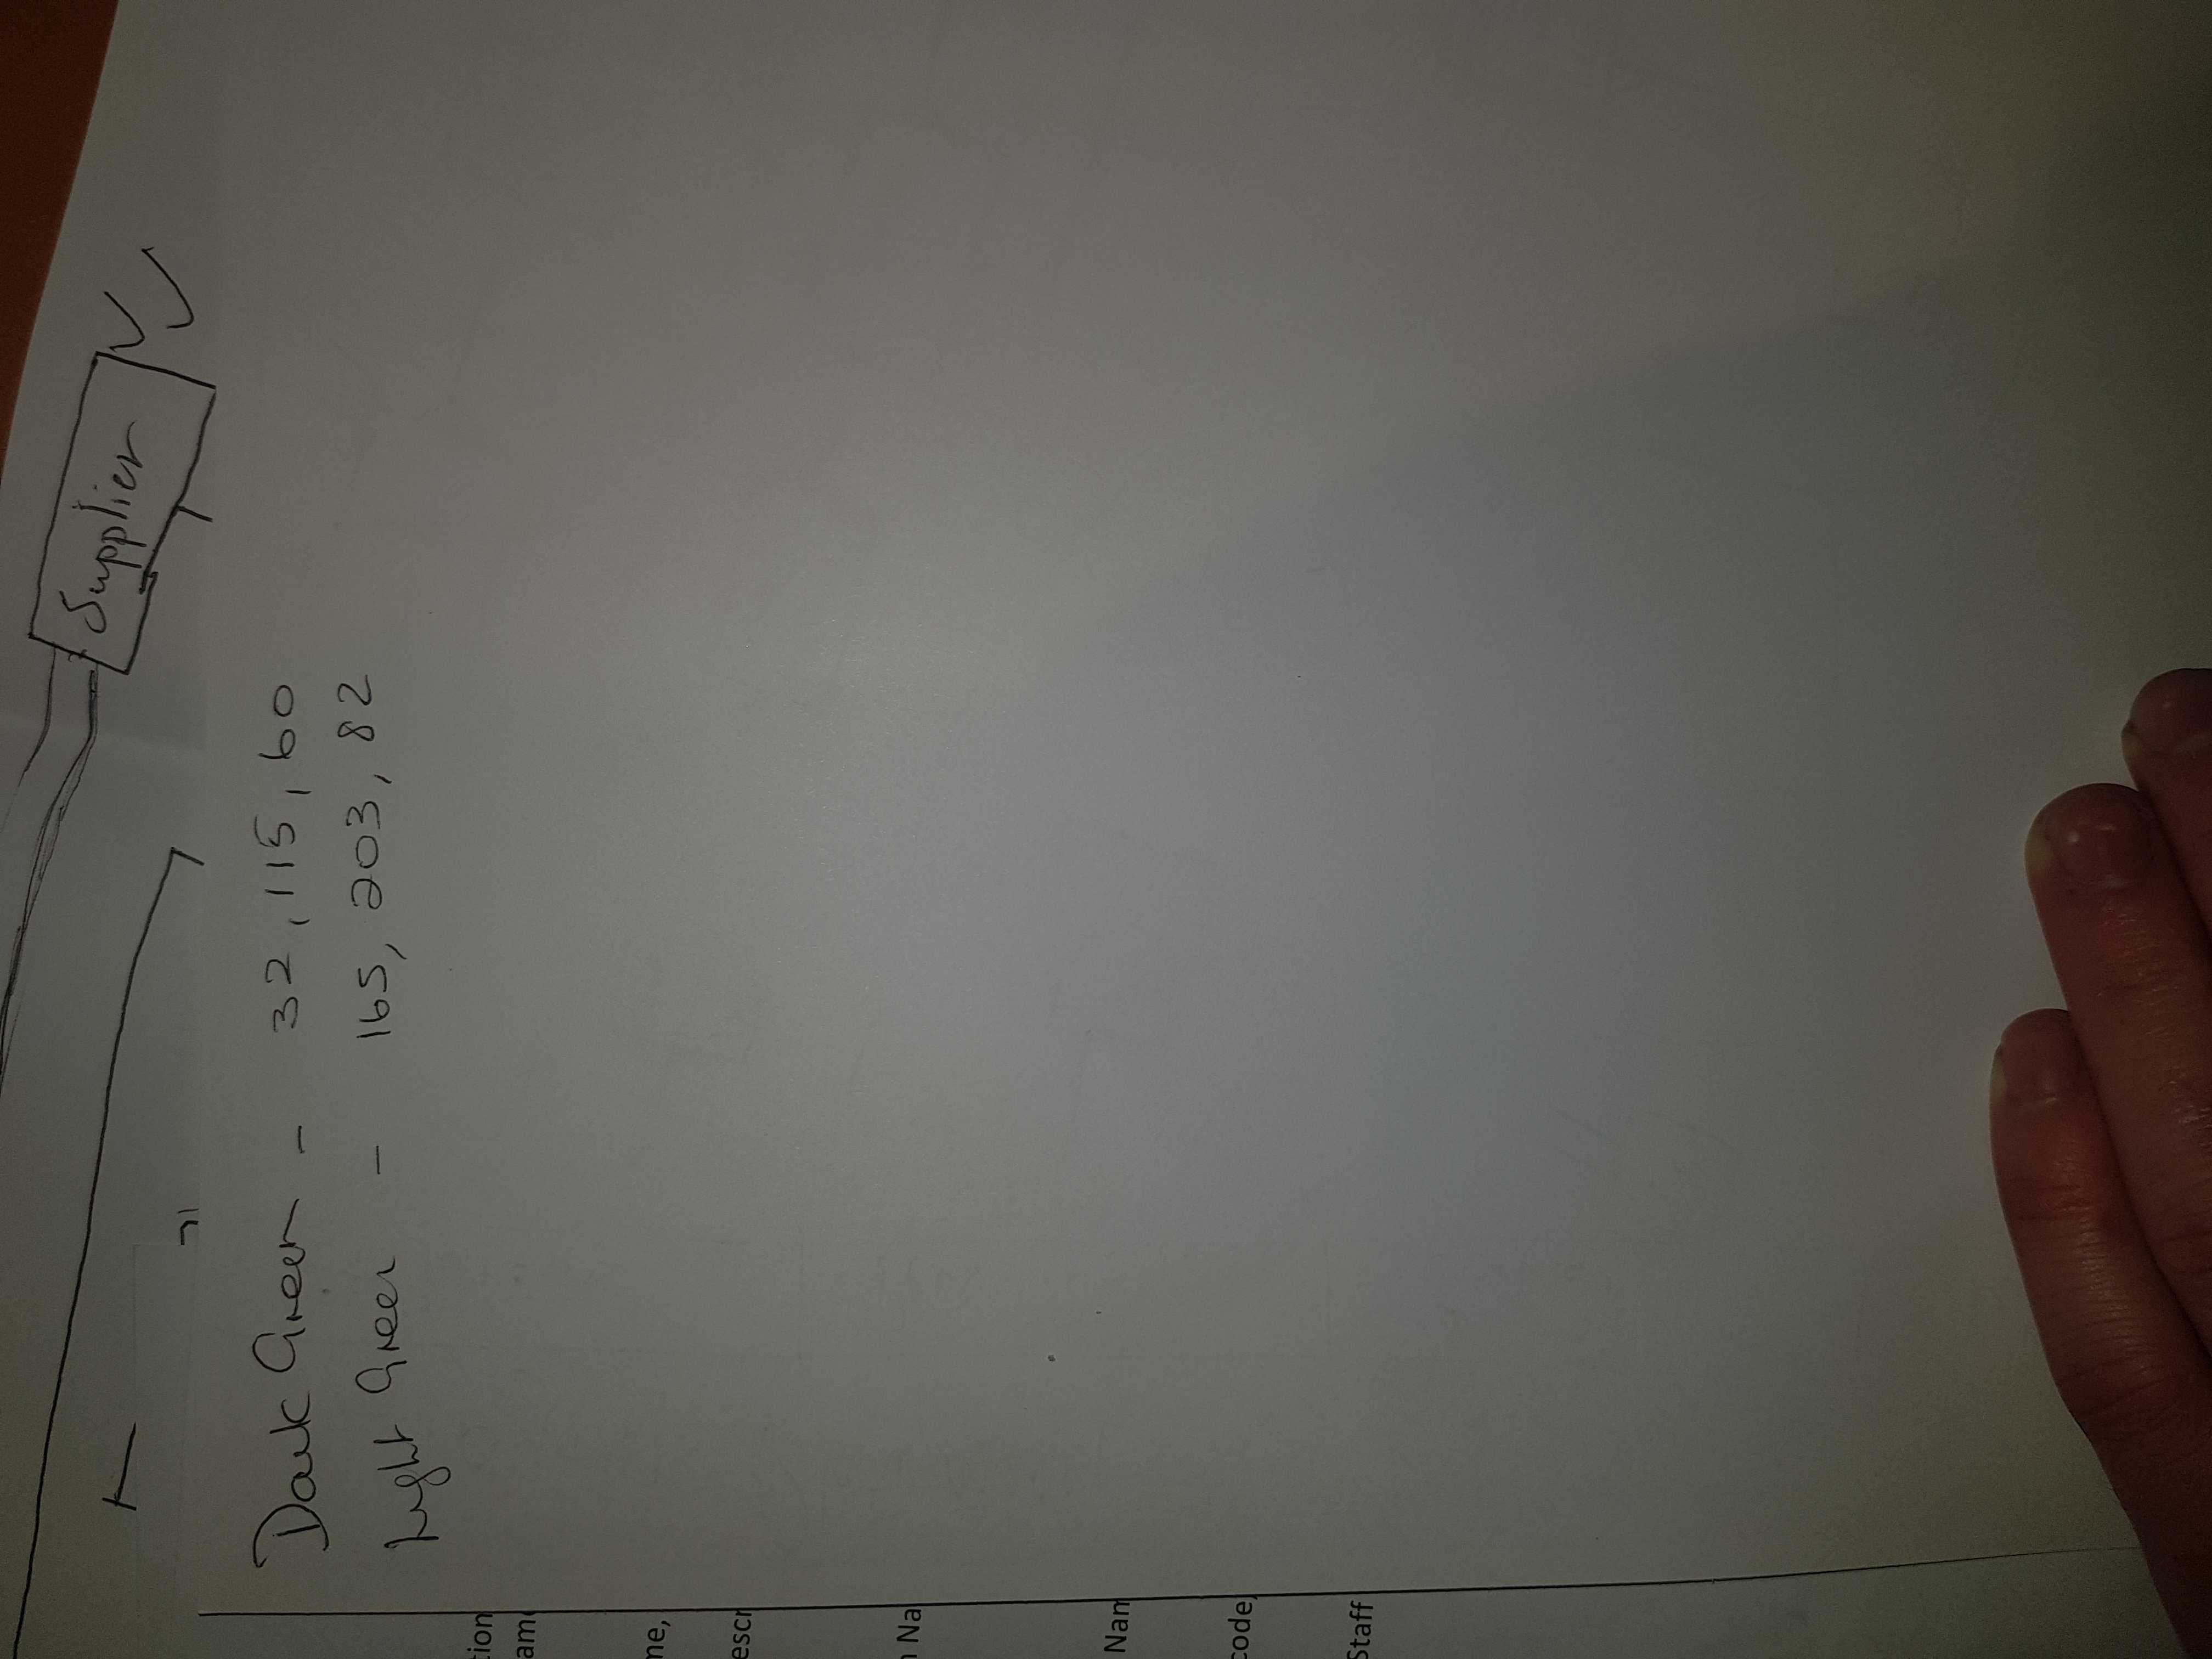 Supplier
Dark Green - 32, 115, 60
Light Green - 165, 203, 82
tion
me,
escr
Na
Nam
code,
Staff